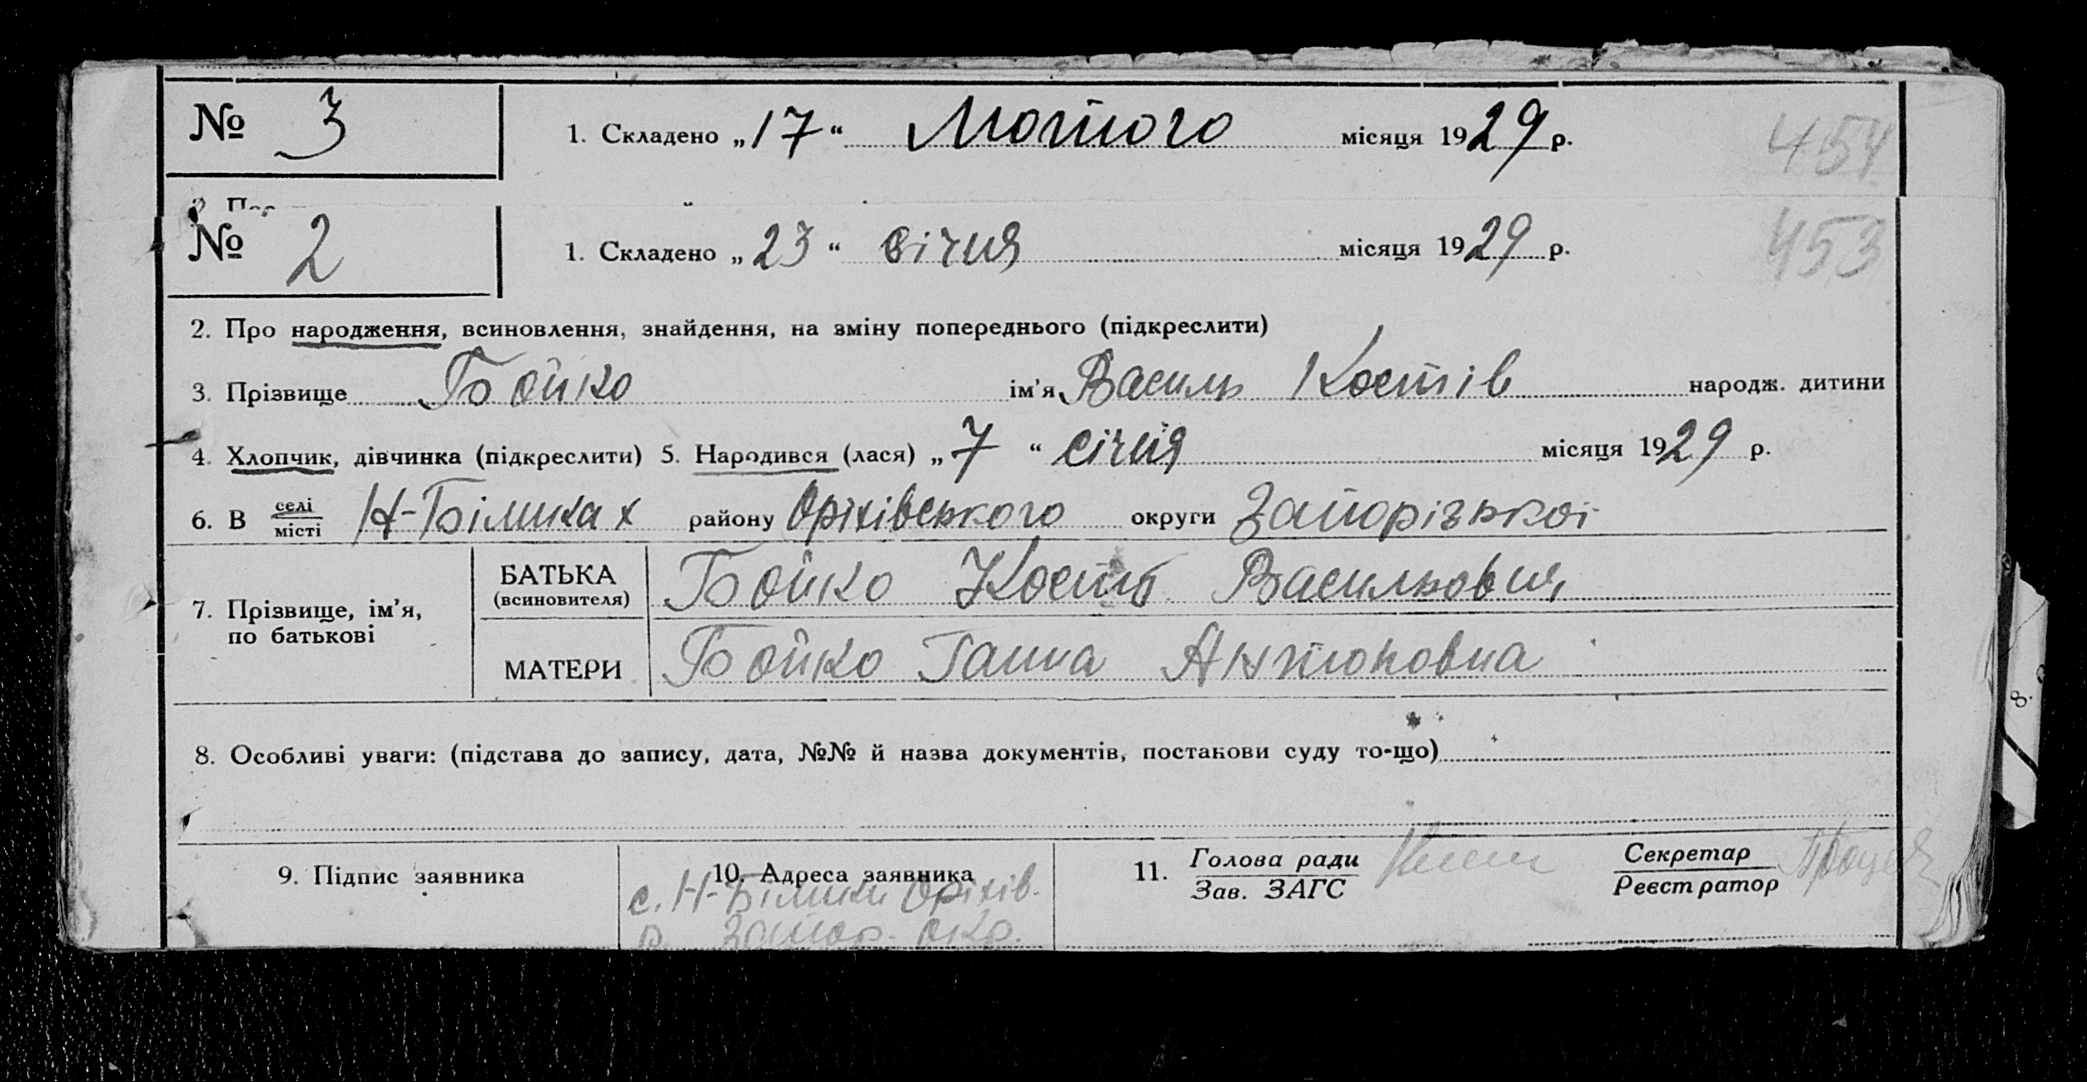 № 3 1. Складено „17“ Лютого місяця 1929 р. 454
№ 2 1. Складено „23“ січня місяця 1929 р. 453
2. Про народження, всиновлення, знайдення, на зміну попереднього (підкреслити)
3. Прізвище Бойко ім'я Василь Костів народж. дитини
4. Хлопчик, дівчинка (підкреслити) 5. Народився (лася) „7“ січня місяця 1929 р.
6. В селі / місті Н-Біликах району Оріхівського округи Запорізької
7. Прізвище, ім'я, по батькові
БАТЬКА (всиновителя) Бойко Кость Васильович
МАТЕРИ Бойко Ганна Антоновна
8. Особливі уваги: (підстава до запису, дата, №№ й назва документів, постанови суду то-що)
9. Підпис заявника
10. Адреса заявника
с. Н-Білики Оріхів.
р. Запор. окр.
11. Голова ради / Зав. ЗАГС
Секретар / Реєстратор